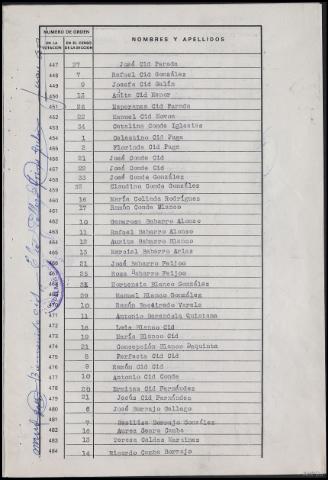 NUMERO DE ORDEN
EN LA VOTACION
EN EL CENSO DE LA SECCION
NOMBRES Y APELLIDOS
447 27 José Cid Parada
448 7 Rafael Cid González
449 9 Josefa Cid Galán
450 13 Anita Cid
451 28 Esperanza Cid Parada
452 22 Manuel Cid Novoa
453 34 Catalina Conde Iglesias
454 1 Celestino Cid Puga
455 2 Florinda Cid Puga
456 21 José Conde Cid
457 22 José Conde Cid
458 33 José Conde González
459 32 Claudina Conde González
460 16 María Celinda Rodríguez
461 17 Ramón Conde Blanco
462 10 Generosa Babarro Alonso
463 11 Rafael Babarro Alonso
464 12 Aurita Babarro Blanco
465 13 Marcial Babarro Arias
466 21 José Babarro Feijoo
467 25 Rosa Babarro Feijoo
Hortensia Blanco González
29 Manuel Blanco González
470 10 Ramón Varela
471 11 Antonio Quintana
472 18 Luis Blanco Cid
473 19 María Blanco Cid
474 21 Concepción Blanco Pequinta
475 8 Perfecta Cid Cid
476 9 Ramón Cid Cid
477 10 Antonio Cid Conde
478 20 Ermitas Cid Fernández
479 21 Jesús Cid Fernández
480 6 José Borrajo Gallego
481 7 Basilisa Borrajo González
482 16 Aurea Cunha
483 13 Teresa Caldas Martínez
484 14 Ricardo Cunha Borrajo